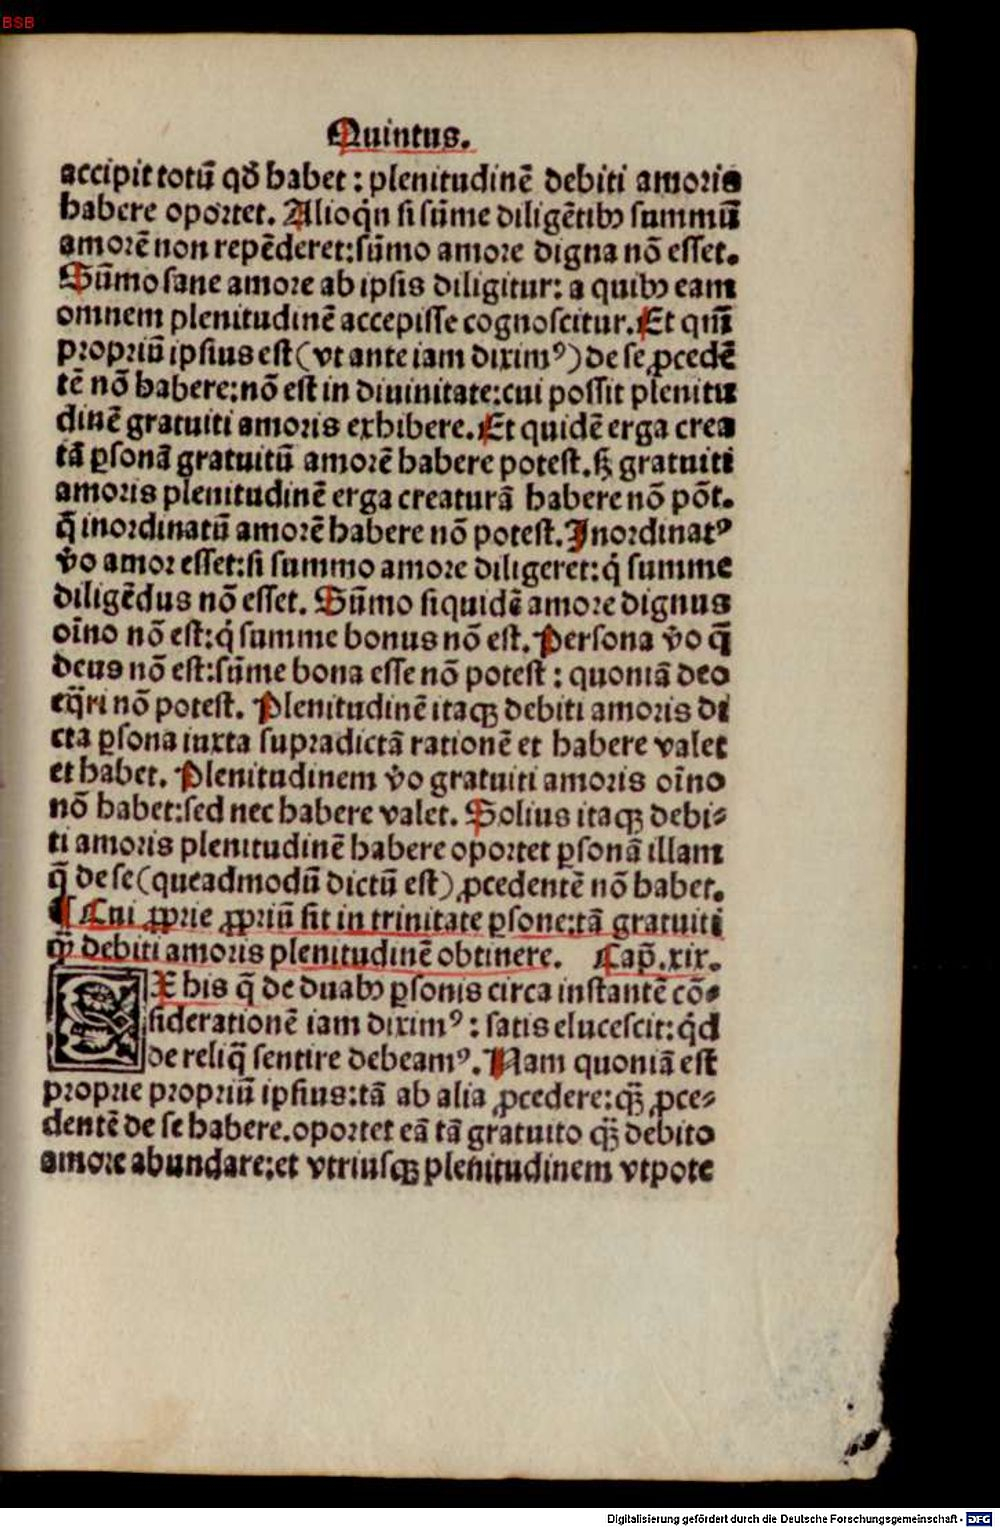 BSB
Quintus.
accipit totū qď habet : plenitudinē debiti amoris
habere oportet. Alioqͥn si sūme diligētibꝫ summū
amorē non repēderet: sūmo amore digna nō esset.
Sūmo sane amore ab ipsis diligitur: a quibꝫ eam
omnem plenitudinē accepisse cognoscitur. Et qm̄
propriū ipsius est (vt ante iam diximꝰ) de se ꝓcedē
tē nō habere: nō est in diuinitate: cui possit plenitu
dinē gratuiti amoris exhibere. Et quidē erga crea
tā ꝑsonā gratuitū amorē habere potest. sꝫ gratuiti
amoris plenitudinē erga creaturā habere nō pōt.
q̄ inordinatū amorē habere nō potest. Inordinatꝰ
v̊o amor esset: si summo amore diligeret: qͥ summe
diligēdus nō esset. Sūmo siquidē amore dignus
oīno nō est: qͥ summe bonus nō est. Persona v̊o q̄
deus nō est: sūme bona esse nō potest : quoniā deo
eq̈ri nō potest. Plenitudinē itaqꝫ debiti amoris di
cta ꝑsona iuxta supradictā rationē et habere valet
et habet. Plenitudinem v̊o gratuiti amoris oīno
nō habet: sed nec habere valet. Solius itaqꝫ debi⸗
ti amoris plenitudinē habere oportet ꝑsonā illam
q̄ de se (queadmodū dictū est) ꝓcedentē nō habet.
¶ Cui ꝓprie ꝓpriū sit in trinitate ꝑsone: tā gratuiti
qꝫ̄ debiti amoris plenitudinē obtinere. Cap̄. xix.
EX his q̄ de duabꝫ ꝑsonis circa instantē cō⸗
siderationē iam diximꝰ : satis elucescit: qͥd
de reliq̄ sentire debeamꝰ. Nam quoniā est
proprie propriū ipsius: tā ab alia ꝓcedere: qꝫ̄ ꝓce⸗
dentē de se habere. oportet eā tā gratuito qꝫ̄ debito
amore abundare: et vtriusqꝫ plenitudinem vtpote
Digitalisierung gefördert durch die Deutsche Forschungsgemeinschaft - DFG